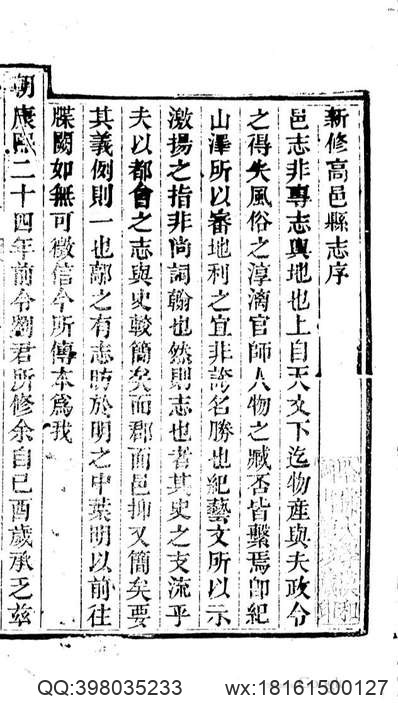 新修高邑縣志序
邑志非專志輿地也上自天文下迄物産與夫政令
之得失風俗之淳漓官師人物之臧否皆繫焉卽紀
山澤所以審地利之宜非誇名勝也紀藝文所以示
激揚之指非尚詞翰也然則志也者其史之支流乎
夫以都會之志與史較簡矣而郡而邑抑又簡矣要
其義例則一也鄗之有志昉於明之中葉明以前往
牒闕如無可徵信今所傳本爲我
朝康熙二十四年前令劉君所修余自己酉歲承乏兹
QQ:398035233 wx:18161500127